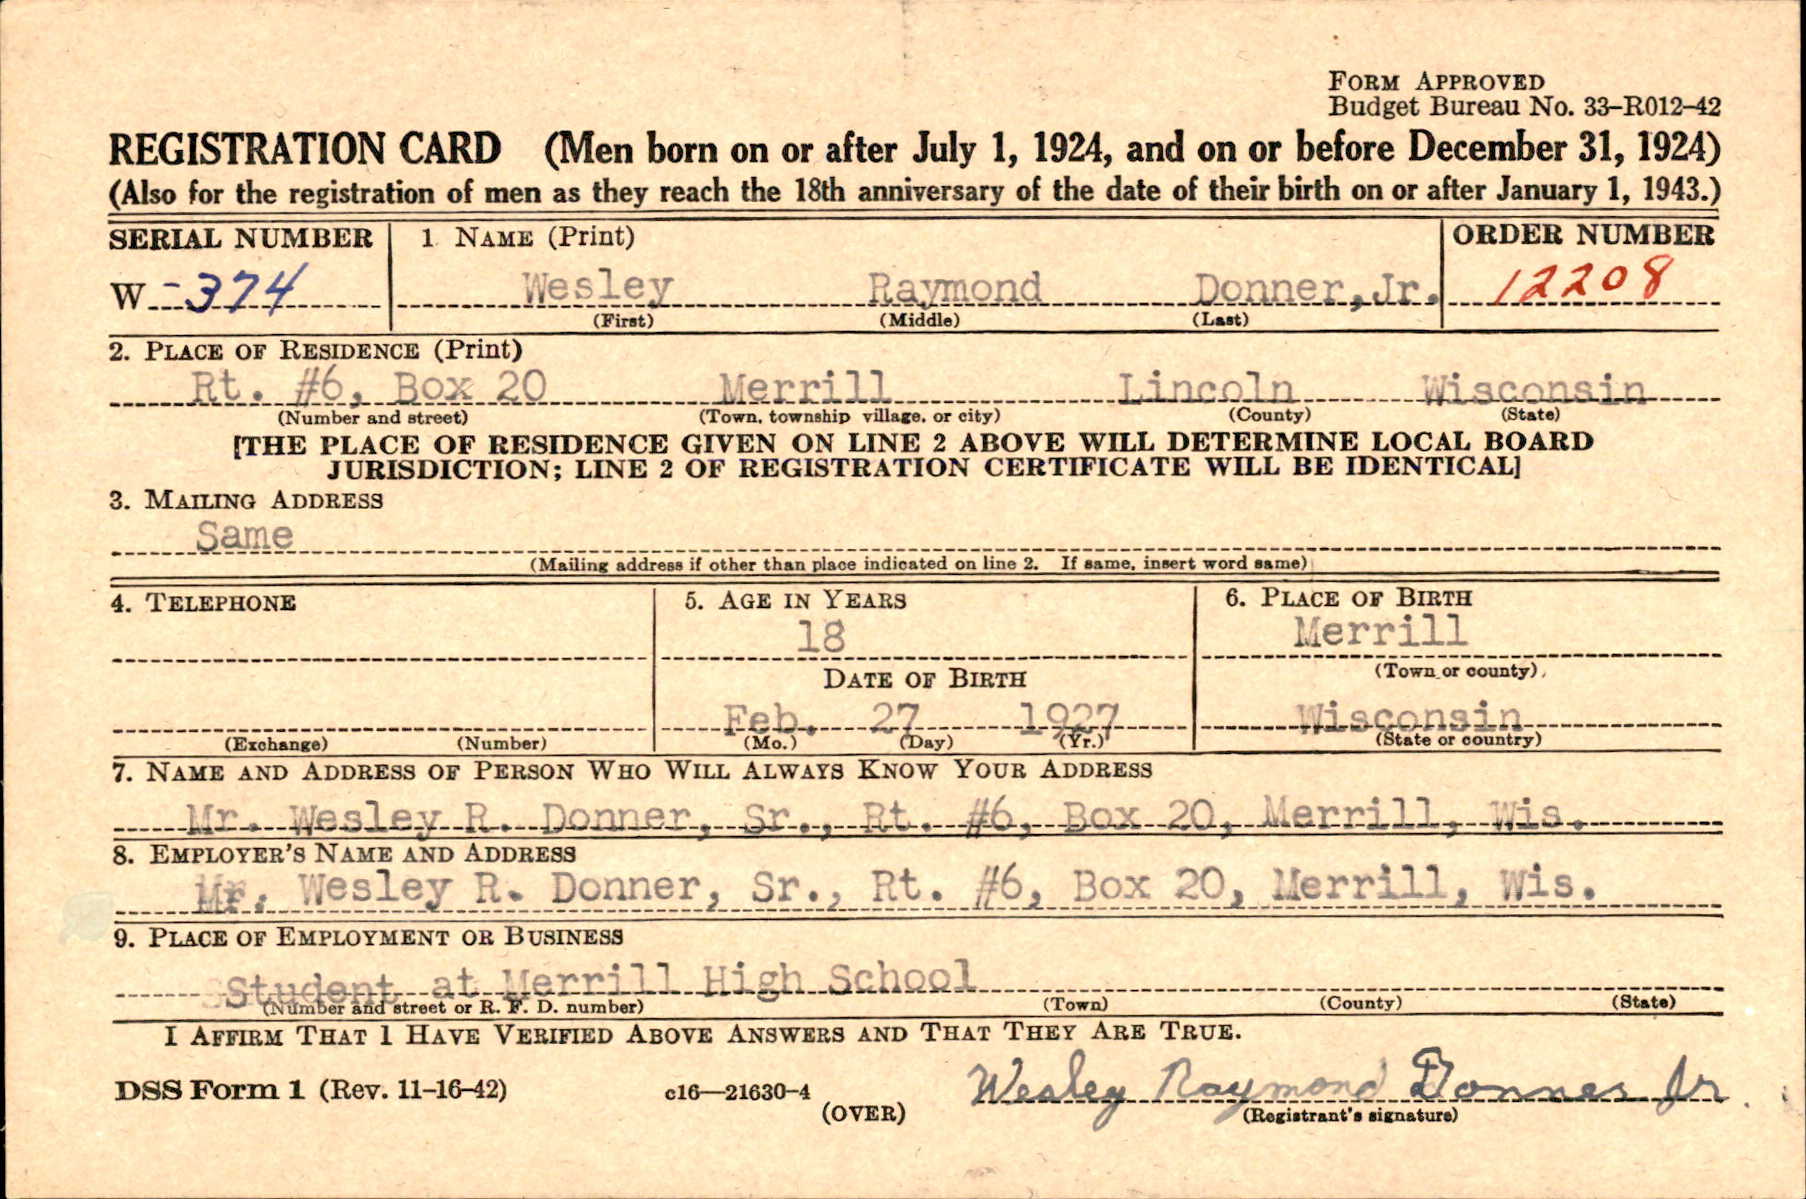 FORM APPROVED
Budget Bureau No. 33–R012–42
REGISTRATION CARD (Men born on or after July 1, 1924, and on or before December 31, 1924)
(Also for the registration of men as they reach the 18th anniversary of the date of their birth on or after January 1, 1943.)
SERIAL NUMBER 1 NAME (Print) ORDER NUMBER
W -374 Wesley Raymond Donner, Jr. 12208
(First) (Middle) (Last)
2. PLACE OF RESIDENCE (Print)
Rt. #6, Box 20 Merrill Lincoln Wisconsin
(Number and street) (Town, township village, or city) (County) (State)
[THE PLACE OF RESIDENCE GIVEN ON LINE 2 ABOVE WILL DETERMINE LOCAL BOARD
JURISDICTION; LINE 2 OF REGISTRATION CERTIFICATE WILL BE IDENTICAL]
3. MAILING ADDRESS
Same
(Mailing address if other than place indicated on line 2. If same, insert word same)
4. TELEPHONE 5. AGE IN YEARS 6. PLACE OF BIRTH
18 Merrill
DATE OF BIRTH (Town or county)
Feb. 27 1927 Wisconsin
(Exchange) (Number) (Mo.) (Day) (Yr.) (State or country)
7. NAME AND ADDRESS OF PERSON WHO WILL ALWAYS KNOW YOUR ADDRESS
Mr. Wesley R. Donner, Sr., Rt. #6, Box 20, Merrill, Wis.
8. EMPLOYER'S NAME AND ADDRESS
Mr. Wesley R. Donner, Sr., Rt. #6, Box 20, Merrill, Wis.
9. PLACE OF EMPLOYMENT OR BUSINESS
Student at Merrill High School
(Number and street or R. F. D. number) (Town) (County) (State)
I AFFIRM THAT I HAVE VERIFIED ABOVE ANSWERS AND THAT THEY ARE TRUE.
DSS Form 1 (Rev. 11–16–42) c16—21630–4 Wesley Raymond Donner Jr.
(OVER) (Registrant's signature)